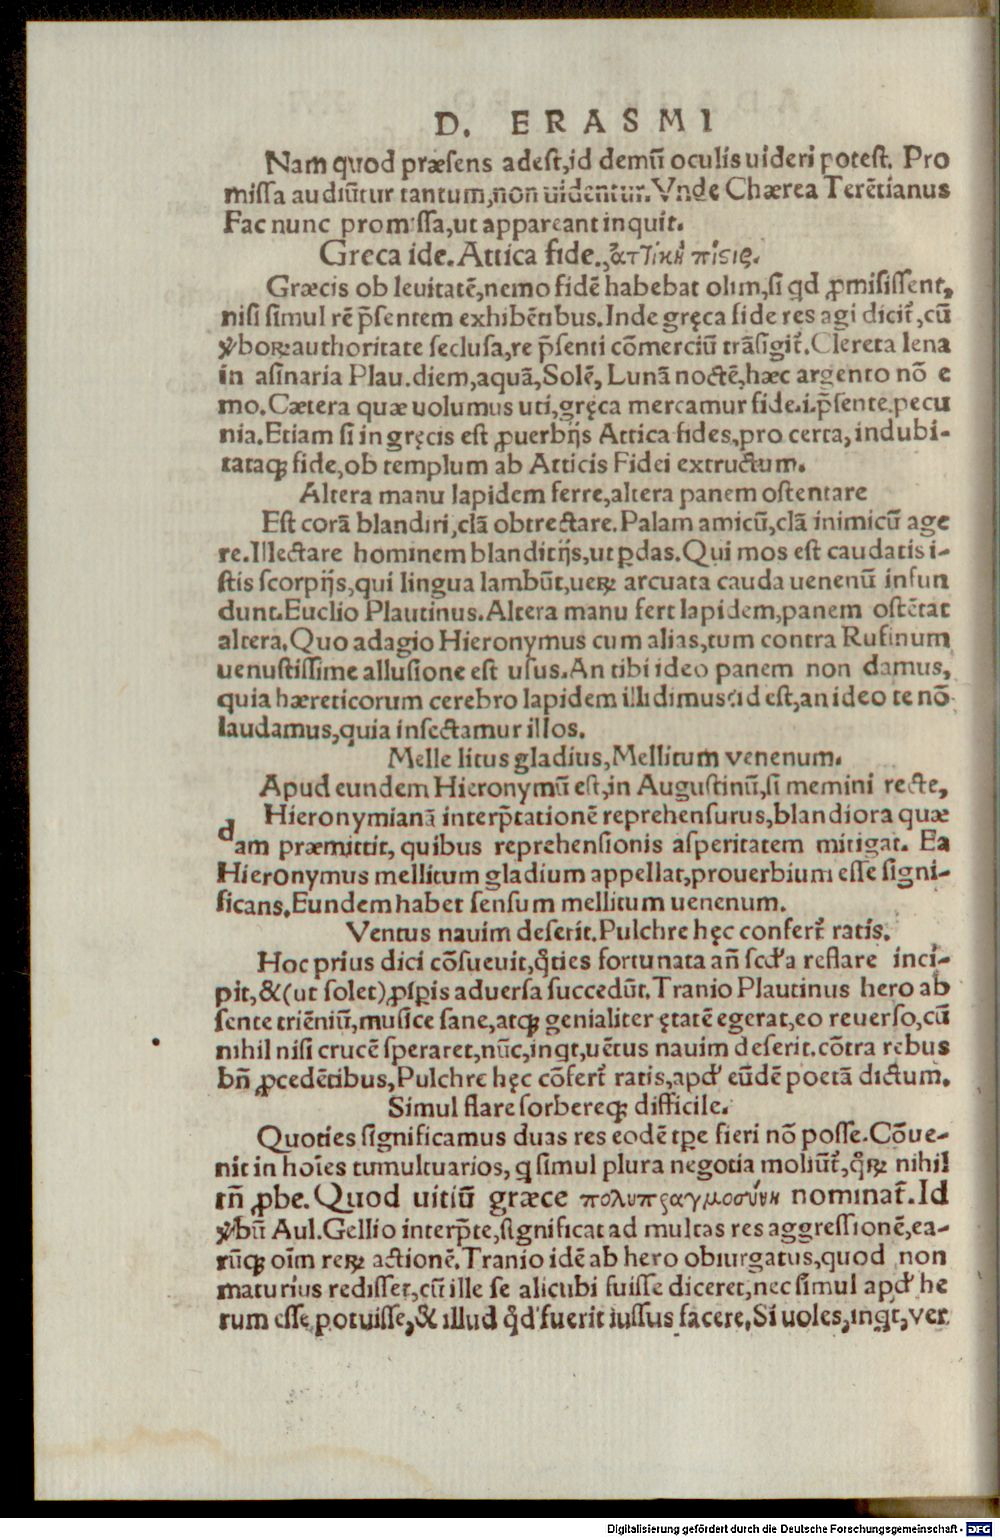 D. ERASMI
Nam quod præsens adest,id demū oculis uideri potest. Pro
missa audiūtur tantum,non uidentur. Vnde Chærea Terētianus
Fac nunc promissa,ut appareant inquit.
Greca ide. Attica fide.,ἀττικὴ πίστις.
Græcis ob leuitatē,nemo fidē habebat olim,si qd ꝓmisissent,
nisi simul rē p̄sentem exhibētibus. Inde gręca fide res agi dicit᷑,cū
ꝟboꝝ authoritate seclusa,re p̄senti cōmerciū trāsigit᷑. Clereta lena
in asinaria Plau.diem,aquā,Solē, Lunā noctē,hæc argento nō e
mo.Cætera quæ uolumus uti,gręca mercamur fide.i.p̄sente pecu
nia.Etiam si in gręcis est ꝓuerbijs Attica fides,pro certa, indubi-
tataqꝫ fide,ob templum ab Atticis Fidei extructum.
Altera manu lapidem ferre,altera panem ostentare
Est corā blandiri,clā obtrectare.Palam amicū,clā inimicū age
re.Illectare hominem blanditijs,ut ꝑdas.Qui mos est caudatis i-
stis scorpijs,qui lingua lambūt,ueꝝ arcuata cauda uenenū infun
dunt.Euclio Plautinus.Altera manu fert lapidem,panem ostētat
altera.Quo adagio Hieronymus cum alias,tum contra Rufinum
uenustissime allusione est usus.An tibi ideo panem non damus,
quia hæreticorum cerebro lapidem illidimus:id est,an ideo te nō
laudamus,quia insectamur illos.
Melle litus gladius,Mellitum venenum.
Apud eundem Hieronymū est,in Augustinū,si memini recte,
Hieronymianā interp̄tationē reprehensurus,blandiora quæ
dam præmittit, quibus reprehensionis asperitatem mitigat. Ea
Hieronymus mellitum gladium appellat,prouerbium esse signi-
ficans.Eundem habet sensum mellitum uenenum.
Ventus nauim deserit.Pulchre hęc confert᷑ ratis.
Hoc prius dici cōsueuit,q̄ties fortunata añ scd'a reflare inci-
pit,&(ut solet)ꝓsꝑis aduersa succedūt.Tranio Plautinus hero ab
sente triēniū,musice sane,atqꝫ genialiter ętatē egerat,eo reuerso,cū
nihil nisi crucē speraret,nūc,inqt,uētus nauim deserit.cōtra rebus
bñ ꝓcedētibus,Pulchre hęc cōfert᷑ ratis,apd' eūdē poetā dictum.
Simul flare sorbereqꝫ difficile.
Quoties significamus duas res eodē tꝑe fieri nō posse.Cōue-
nit in hoīes tumultuarios, q simul plura negotia moliūt᷑,q̄ꝝ nihil
tñ ꝓbe. Quod uitiū græce πολυπραγμοσύνη nominat᷑. Id
ꝟbū Aul.Gellio interp̄te,significat ad multas res aggressionē,ea-
rūqꝫ oīm reꝝ actionē.Tranio idē ab hero obiurgatus,quod non
maturius redisset,cū ille se alicubi fuisse diceret,nec simul apd' he
rum esse potuisse,& illud q̄d' fuerit iussus facere,Si uoles,inqt,ver
Digitalisierung gefördert durch die Deutsche Forschungsgemeinschaft - DFG